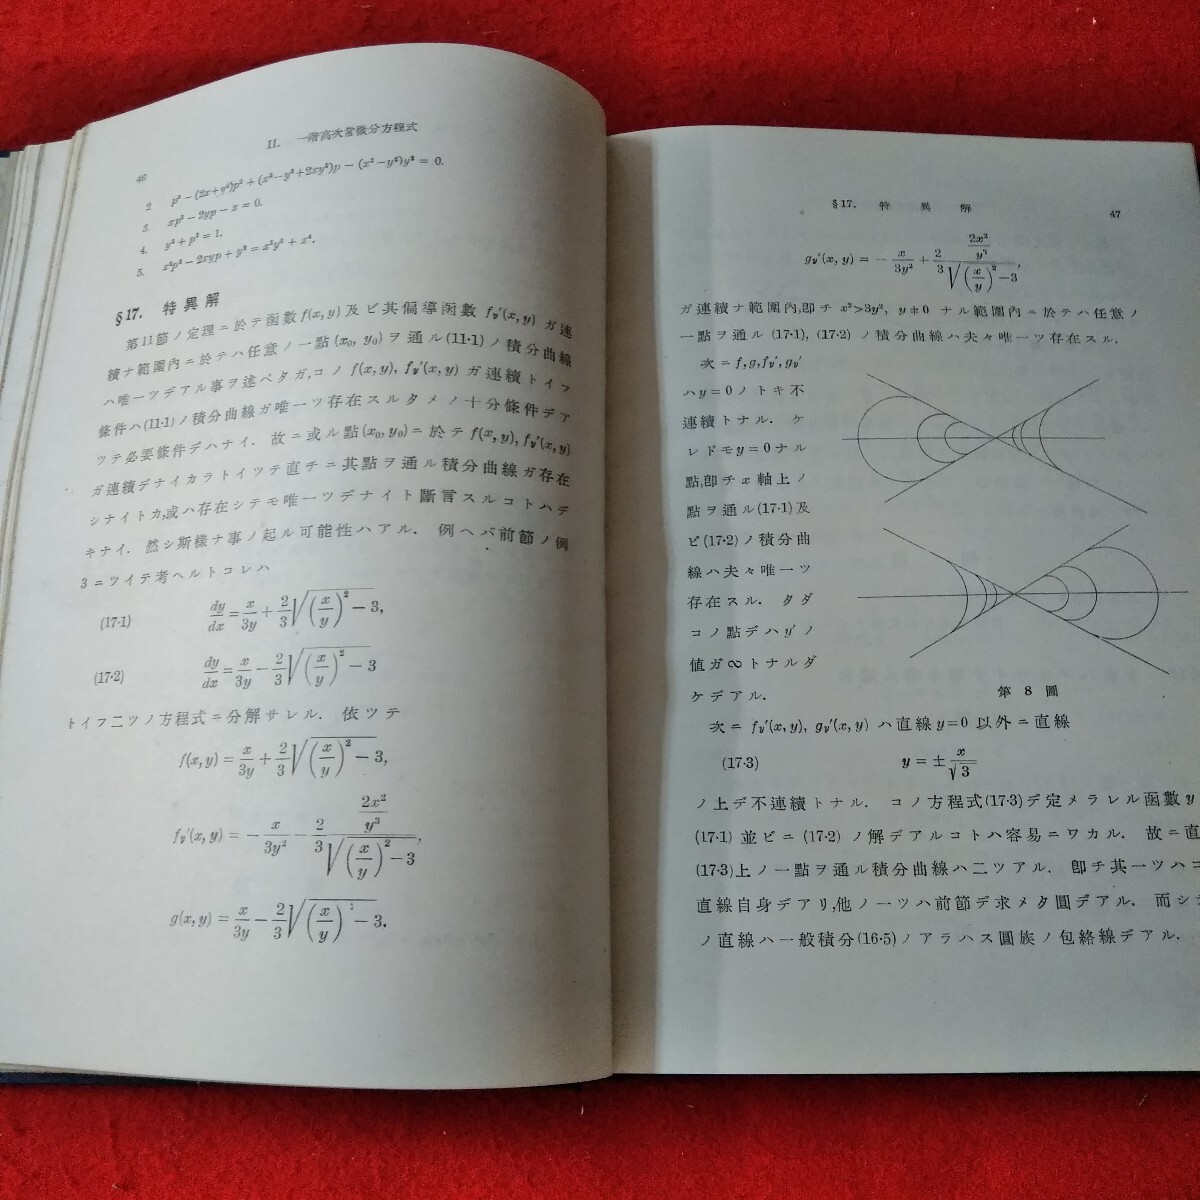 II. 一階高次常微分方程式
46
2. p³−(2x+y²)p²+(x²−y²+2xy²)p−(x²−y²)y² = 0.
3. xp²−2yp−x = 0.
4. y²+p² = 1.
5. x²p²−2xyp+y² = x²y²+x⁴.
§17. 特異解
第11節ノ定理ニ於テ函數 f(x,y) 及ビ其偏導函數 fy′(x,y) ガ連
續ナ範圍內ニ於テハ任意ノ一點(x₀, y₀)ヲ通ル(11·1)ノ積分曲線
ハ唯一ツデアル事ヲ述ベタガ,コノ f(x,y), fy′(x,y) ガ連續トイフ
條件ハ(11·1)ノ積分曲線ガ唯一ツ存在スルタメノ十分條件デア
ツテ必要條件デハナイ. 故ニ或ル點(x₀,y₀)ニ於テ f(x,y), fy′(x,y)
ガ連續デナイカラトイツテ直チニ其點ヲ通ル積分曲線ガ存在
シナイトカ,或ハ存在シテモ唯一ツデナイト斷言スルコトハデ
キナイ. 然シ斯樣ナ事ノ起ル可能性ハアル. 例ヘバ前節ノ例
3ニツイテ考ヘルトコレハ
(17·1) dy/dx = x/3y + 2/3 √((x/y)²−3),
(17·2) dy/dx = x/3y − 2/3 √((x/y)²−3)
トイフ二ツノ方程式ニ分解サレル. 依ツテ
f(x,y) = x/3y + 2/3 √((x/y)²−3),
fy′(x,y) = − x/3y² − 2/3 (2x²/y³)/√((x/y)²−3),
g(x,y) = x/3y − 2/3 √((x/y)²−3).
§17. 特異解
47
gy′(x,y) = − x/3y² + 2/3 (2x²/y³)/√((x/y)²−3),
ガ連續ナ範圍內,卽チ x²>3y², y≠0 ナル範圍內ニ於テハ任意ノ
一點ヲ通ル (17·1), (17·2) ノ積分曲線ハ夫々唯一ツ存在スル.
次ニ f, g, fy′, gy′
ハ y=0 ノトキ不
連續トナル. ケ
レドモ y=0 ナル
點,卽チ x 軸上ノ
點ヲ通ル (17·1)及
ビ (17·2) ノ積分曲
線ハ夫々唯一ツ
存在スル. タダ
コノ點デハ y′ ノ
値ガ∞トナルダ
ケデアル.
第8圖
次ニ fy′(x,y), gy′(x,y) ハ直線 y=0 以外ニ直線
(17·3) y = ± x/√3
ノ上デ不連續トナル. コノ方程式(17·3)デ定メラレル函數 y
(17·1) 並ビニ (17·2) ノ解デアルコトハ容易ニワカル. 故ニ直
(17·3)上ノ一點ヲ通ル積分曲線ハ二ツアル. 卽チ其一ツハコ
直線自身デアリ,他ノ一ツハ前節デ求メタ圓デアル. 而シテ
ノ直線ハ一般積分(16·5)ノアラハス圓族ノ包絡線デアル.